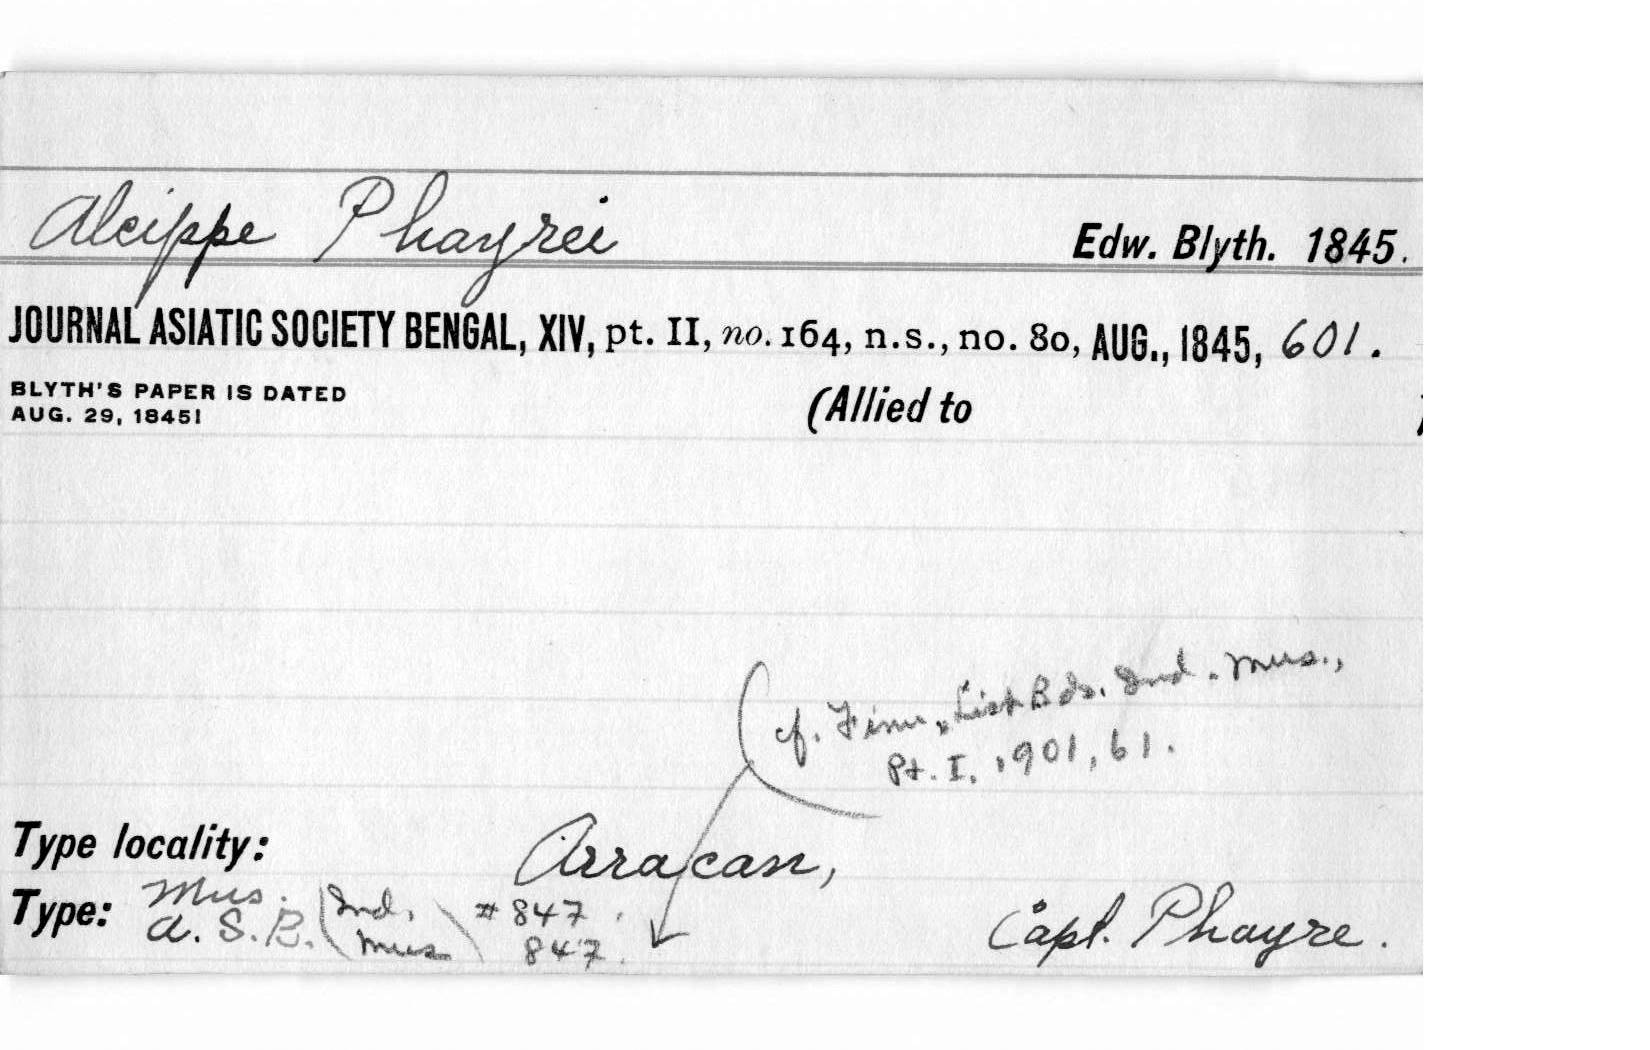 Alcippe Phayrei Edw. Blyth. 1845.
JOURNAL ASIATIC SOCIETY BENGAL, XIV, pt. II, no. 164, n.s., no. 80, AUG., 1845, 601.
BLYTH'S PAPER IS DATED
AUG. 29, 1845!
(Allied to )
(cf. Finn, List Bds. Ind. Mus.,
Pt. I, 1901, 61.
Type locality: Arracan,
Type: Mus. (Ind. #847.
A. S. B. Mus) 847.
Capt. Phayre.